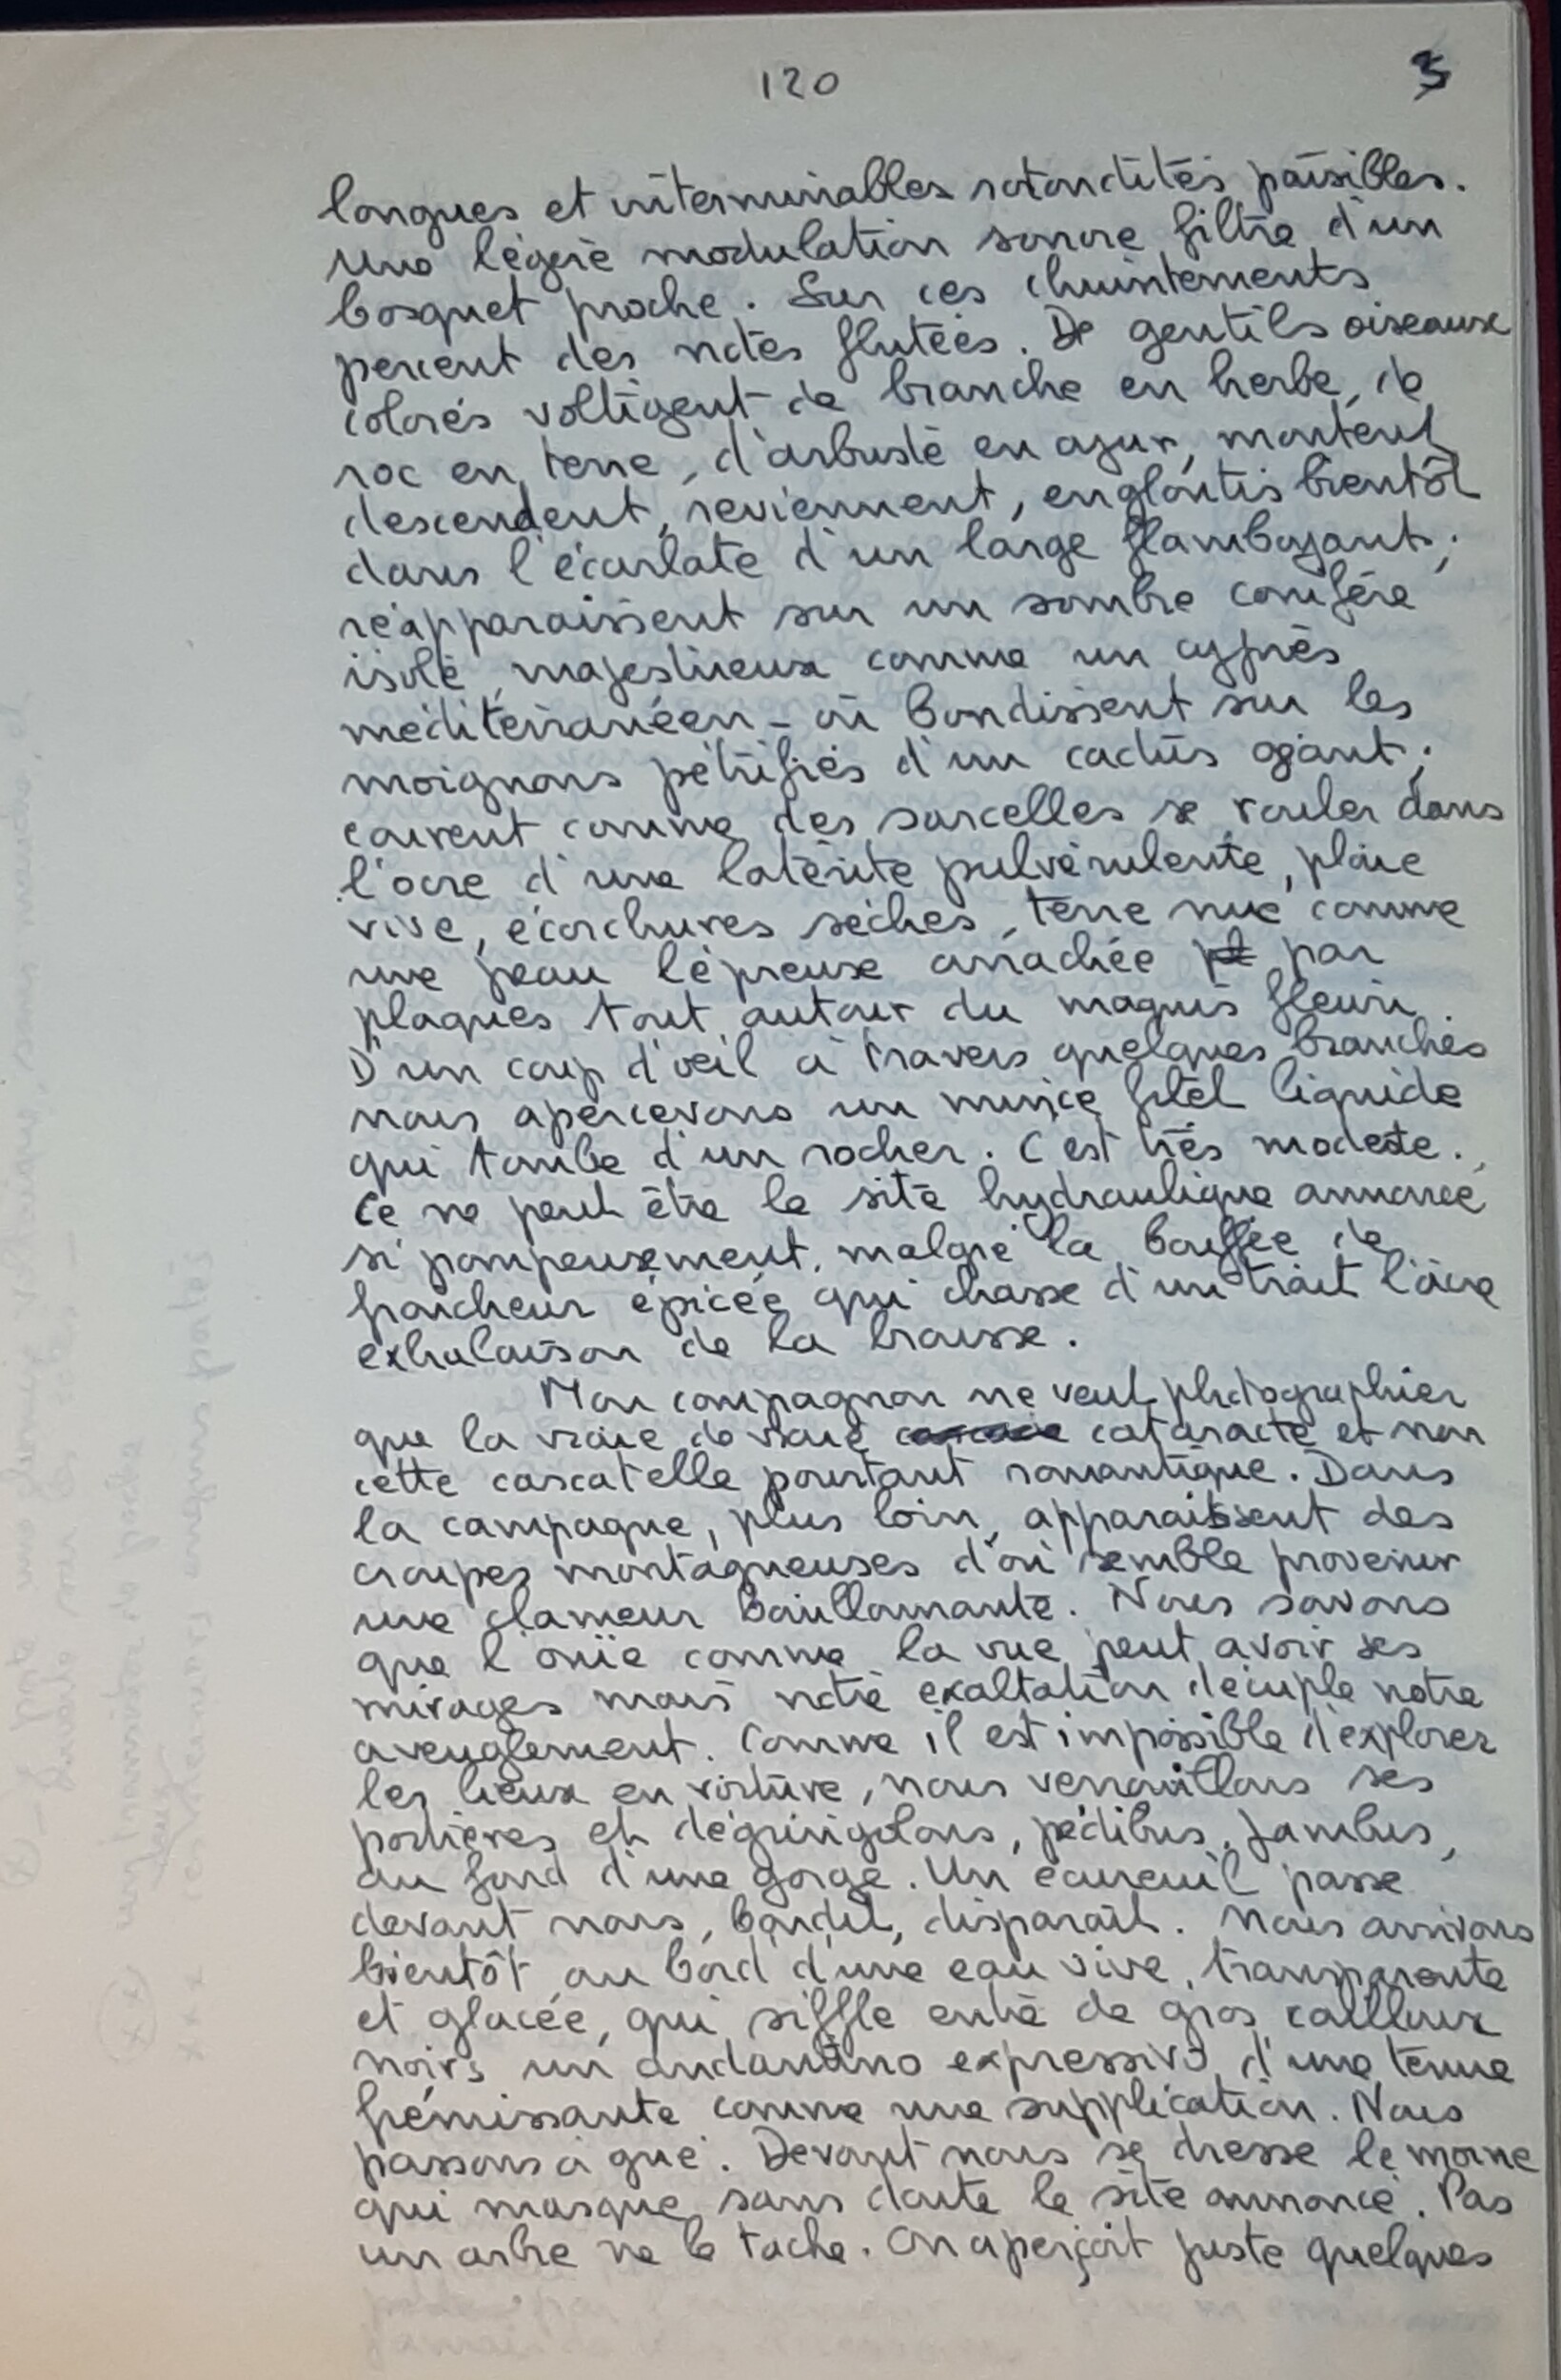 120
longues et interminables rotondités paisibles.
Une légère modulation sonore filtre d'un
bosquet proche. Sur ces chuintements
percent des notes flutées. De gentils oiseaux
colorés voltigent de branche en herbe, de
roc en terre, d'arbuste en azur, montent
descendent, reviennent, engloutis bientôt
dans l'écarlate d'un large flamboyant ;
réapparaissent sur un sombre conifère
isolé, majestueux comme un cyprès
méditerranéen - où bondissent sur les
moignons pétrifiés d'un cactus géant ;
courent comme des sarcelles se rouler dans
l'ocre d'une latérite pulvérulente, plaie
vive, écorchures sèches, terre nue comme
une peau lépreuse arrachée par
plaques tout autour du maquis fleuri.
D'un coup d'œil à travers quelques branches
nous apercevons un mince filet liquide
qui tombe d'un rocher. C'est très modeste.
Ce ne peut être le site hydraulique annoncé
si pompeusement, malgré la bouffée de
fraîcheur épicée qui chasse d'un trait l'âcre
exhalaison de la brousse.
Mon compagnon ne veut photographier
que la vraie de vraie cataracte et non
cette cascatelle pourtant romantique. Dans
la campagne, plus loin, apparaissent des
croupes montagneuses d'où semble provenir
une clameur bouillonnante. Nous savons
que l'ouïe comme la vue peut avoir ses
mirages mais notre exaltation décuple notre
aveuglement. Comme il est impossible d'explorer
les lieux en voiture, nous verrouillons ses
portières et dégringolons, pédibus, jambus,
au fond d'une gorge. Un écureuil passe
devant nous, bondit, disparaît. Nous arrivons
bientôt au bord d'une eau vive, transparente
et glacée, qui siffle entre de gros cailloux
noirs un andantino expressivo d'une tenue
frémissante comme une supplication. Nous
passons à gué. Devant nous se dresse le morne
qui masque sans doute le site annoncé. Pas
un arbre ne le tache. On aperçoit juste quelques